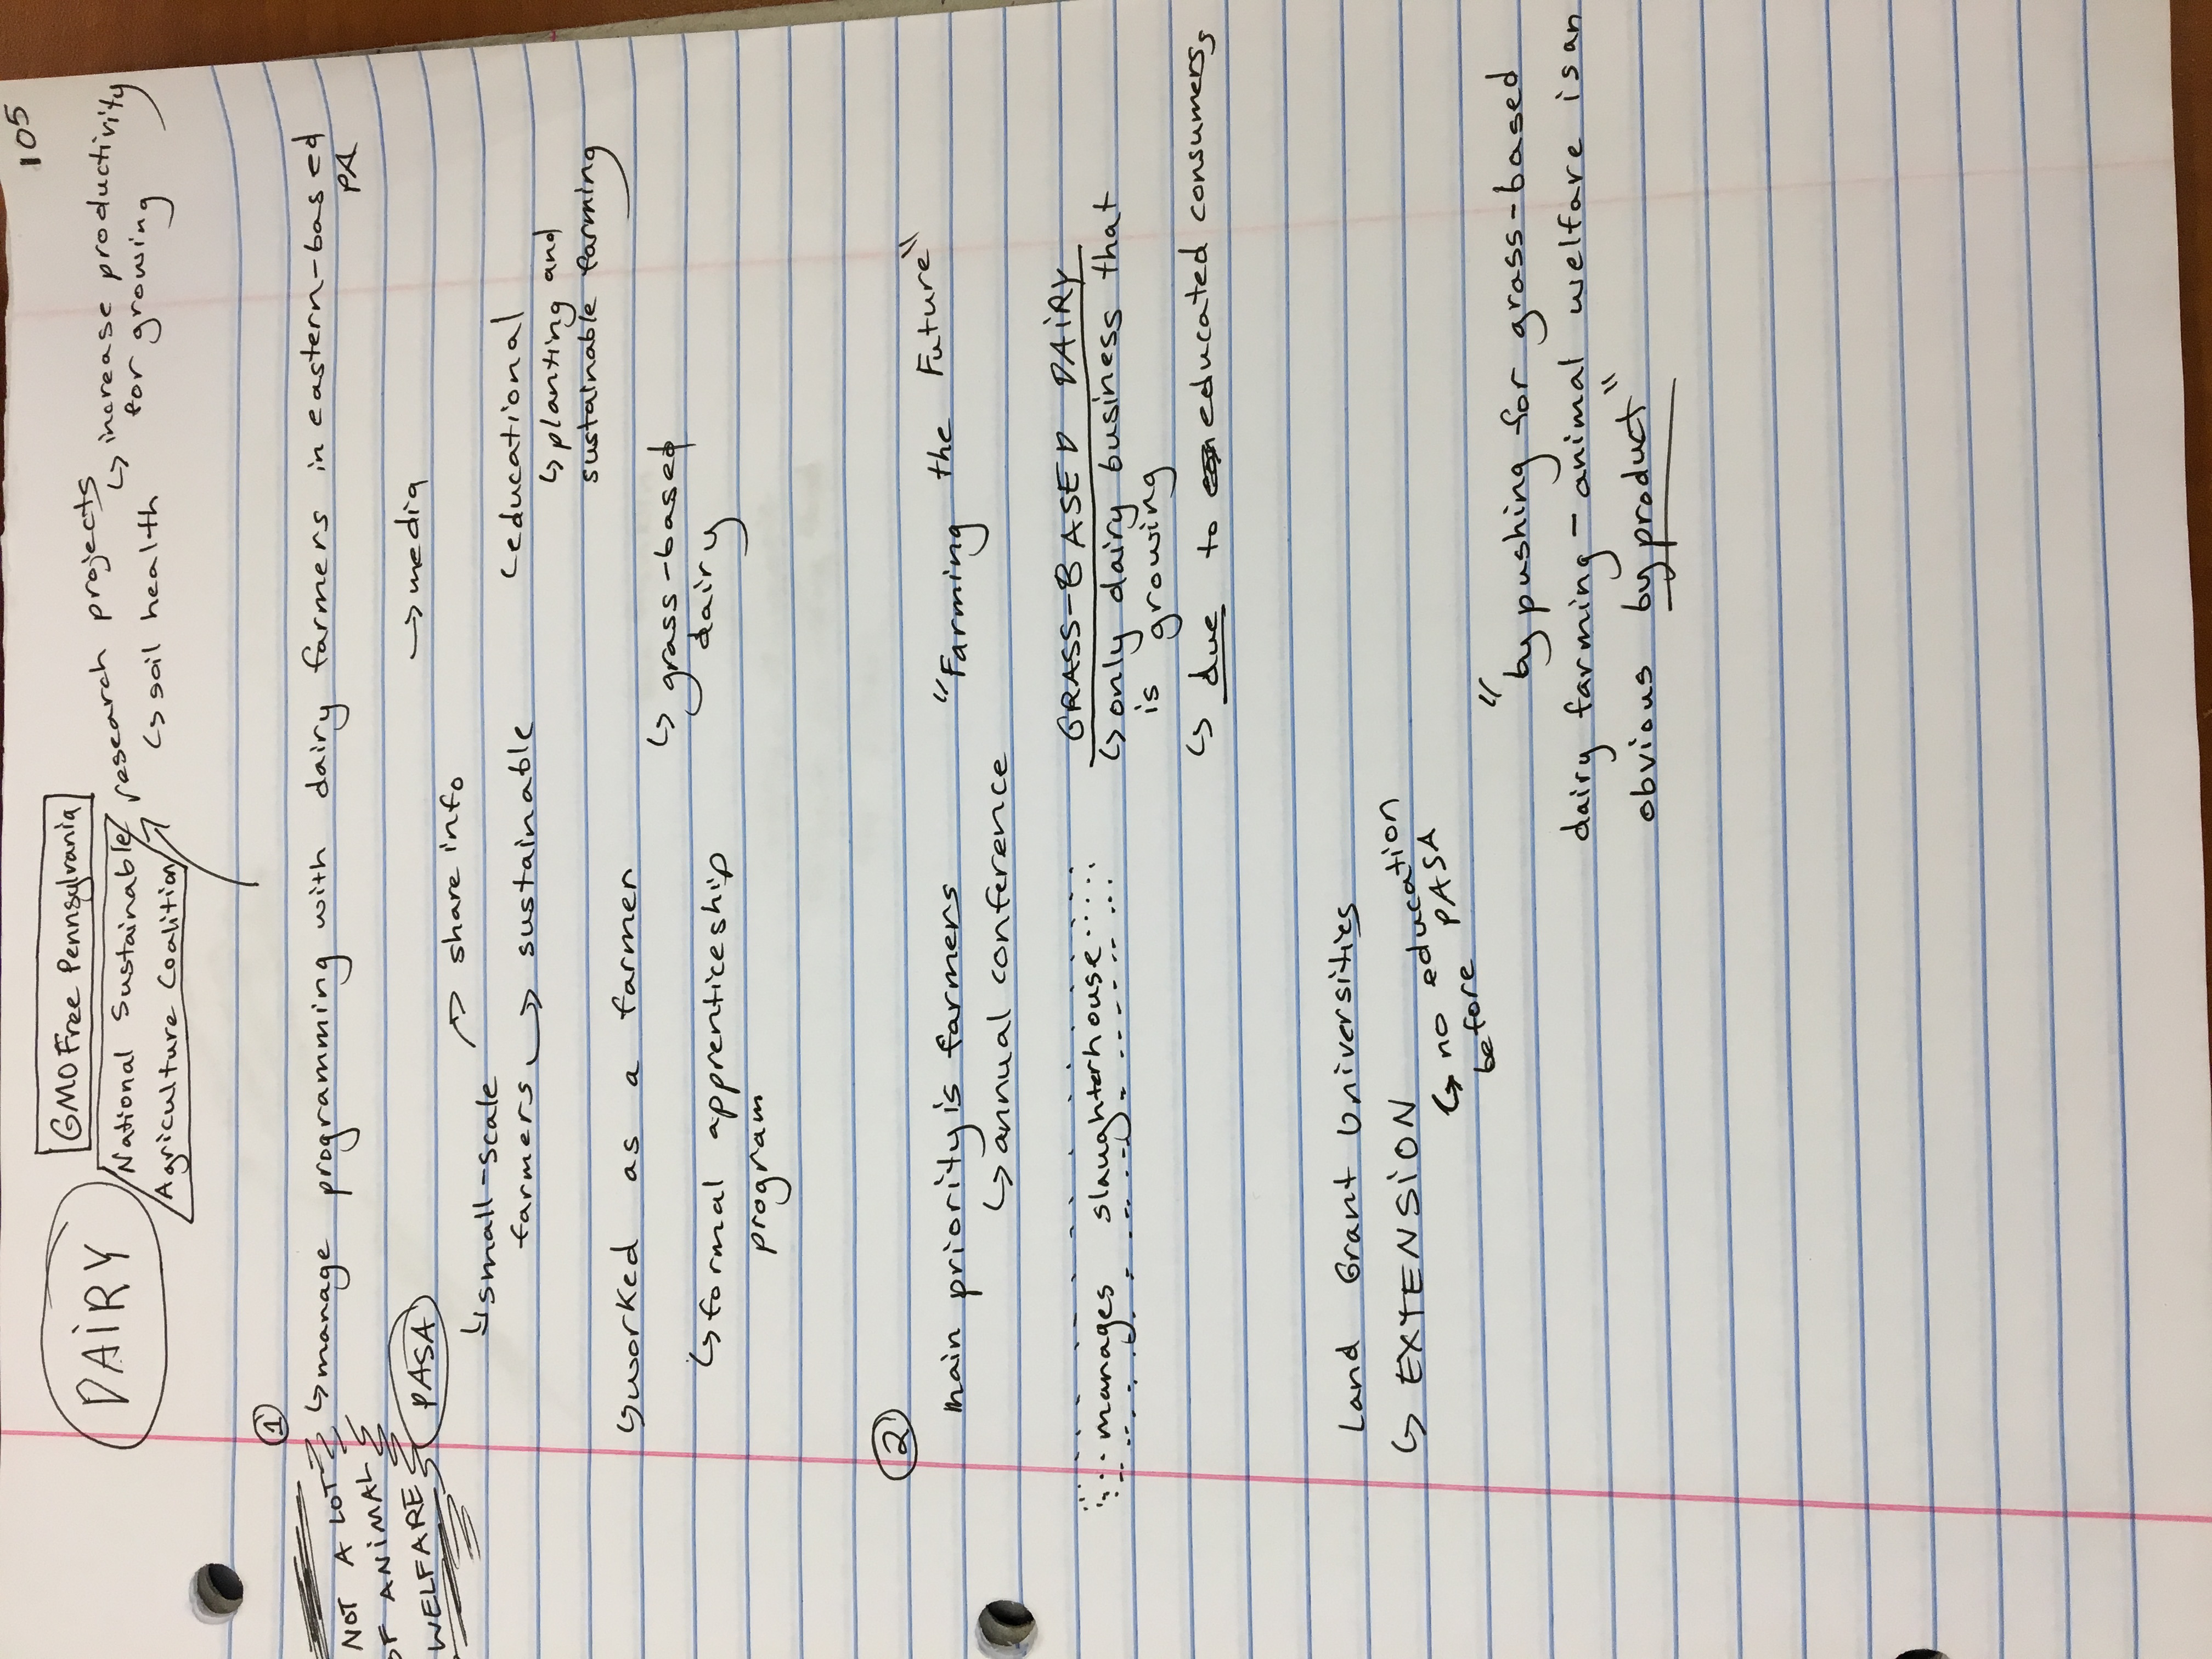 105
DAiRY
GMO Free Pennsylvania
National Sustainable
Agriculture Coalition
research projects
↳ increase productivity
for growing
↳ soil health
①
↳ manage programming with dairy farmers in eastern-based
PA
NOT A LOT
OF ANiMAL
WELFARE
PASA
→ media
↳ small-scale
farmers
→ share info
→ sustainable
educational
↳ planting and
sustainable farming
↳ worked as a farmer
↳ grass-based
dairy
↳ formal apprenticeship
program
②
main priority is farmers
↳ annual conference
"Farming the Future"
manages slaughterhouse
GRASS-BASED DAiRY
↳ only dairy business that
is growing
↳ due to educated consumers
Land Grant Universities
↳ EXTENSiON
↳ no education
before PASA
"by pushing for grass-based
dairy farming - animal welfare is an
obvious byproduct"